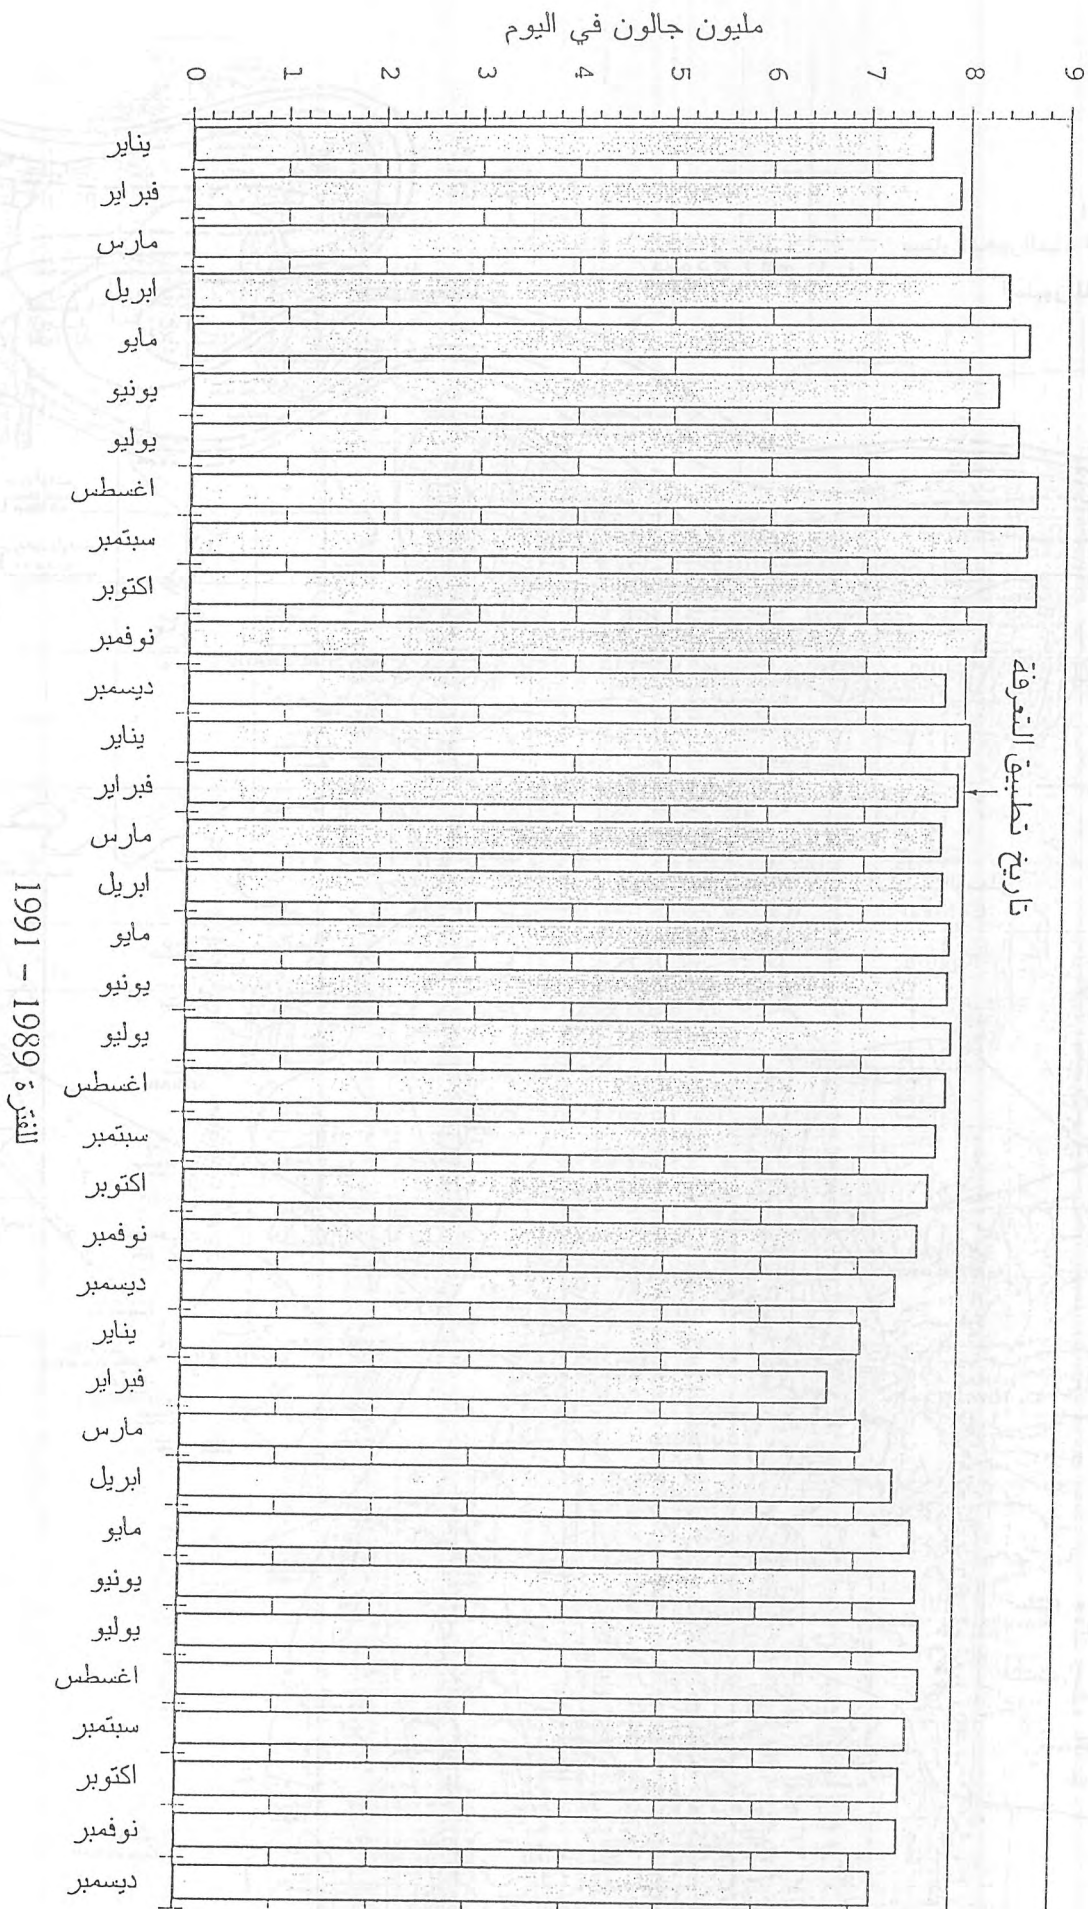 مليون جالون في اليوم
0 1 2 3 4 5 6 7 8 9
يناير
فبراير
مارس
ابريل
مايو
يونيو
يوليو
اغسطس
سبتمبر
اكتوبر
نوفمبر
ديسمبر
يناير
فبراير
تاريخ تطبيق التعرفة
مارس
ابريل
مايو
يونيو
يوليو
اغسطس
سبتمبر
اكتوبر
نوفمبر
ديسمبر
يناير
فبراير
مارس
ابريل
مايو
يونيو
يوليو
اغسطس
سبتمبر
اكتوبر
نوفمبر
ديسمبر
للفترة 1989 - 1991